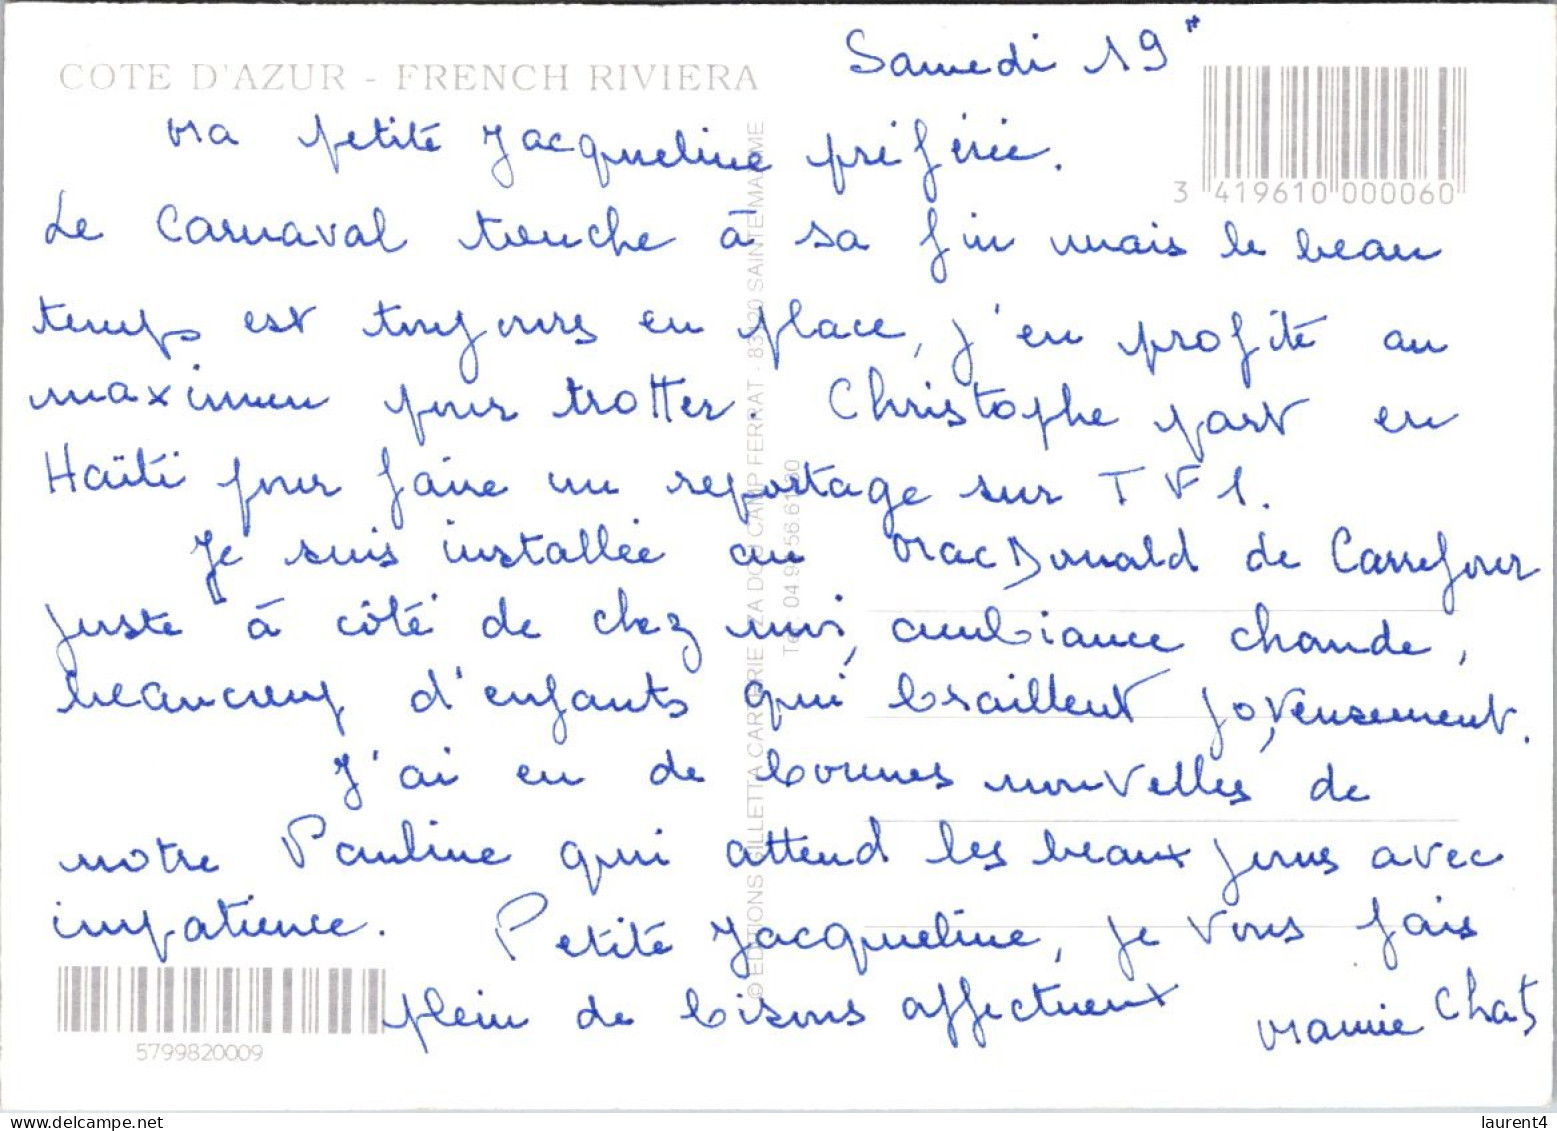 Samedi 19
COTE D'AZUR - FRENCH RIVIERA
3 419610 000060
Ma petite Jacqueline préférée.
Le Carnaval touche à sa fin mais le beau
temps est toujours en place, j'en profite au
maximum pour trotter. Christophe part en
Haïti pour faire un reportage sur TF1.
Je suis installée au MacDonald de Carrefour
juste à côté de chez moi, ambiance chaude,
beaucoup d'enfants qui braillent joyeusement.
J'ai eu de bonnes nouvelles de
notre Pauline qui attend les beaux jours avec
impatience. Petite Jacqueline, je vous fais
plein de bisous affectueux
Mamie Chats
5799820009
© EDITIONS GILLETTA CARTERIE - ZA DOU CAMP FERRAT - 83120 SAINTE MAXIME
laurent4